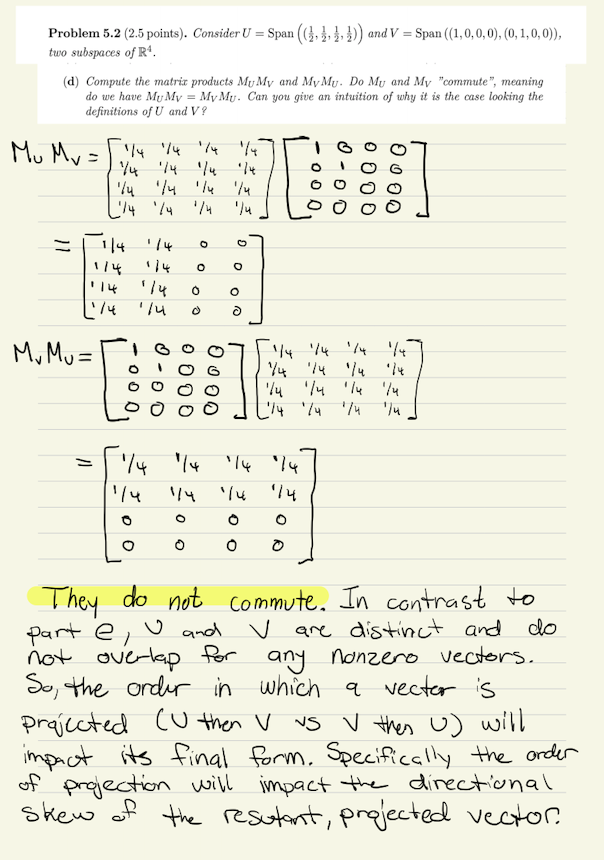 Problem 5.2 (2.5 points). Consider U = Span ((1/2, 1/2, 1/2, 1/2)) and V = Span ((1, 0, 0, 0), (0, 1, 0, 0)),
two subspaces of R⁴.
(d) Compute the matrix products M_U M_V and M_V M_U. Do M_U and M_V "commute", meaning
do we have M_U M_V = M_V M_U. Can you give an intuition of why it is the case looking the
definitions of U and V?
M_U M_V = [1/4 1/4 1/4 1/4] [1 0 0 0]
[1/4 1/4 1/4 1/4] [0 1 0 0]
[1/4 1/4 1/4 1/4] [0 0 0 0]
[1/4 1/4 1/4 1/4] [0 0 0 0]
= [1/4 1/4 0 0]
[1/4 1/4 0 0]
[1/4 1/4 0 0]
[1/4 1/4 0 0]
M_V M_U = [1 0 0 0] [1/4 1/4 1/4 1/4]
[0 1 0 0] [1/4 1/4 1/4 1/4]
[0 0 0 0] [1/4 1/4 1/4 1/4]
[0 0 0 0] [1/4 1/4 1/4 1/4]
= [1/4 1/4 1/4 1/4]
[1/4 1/4 1/4 1/4]
[0 0 0 0]
[0 0 0 0]
They do not commute. In contrast to
part e, U and V are distinct and do
not overlap for any nonzero vectors.
So, the order in which a vector is
projected (U then V vs V then U) will
impact its final form. Specifically the order
of projection will impact the directional
skew of the resutant, projected vector.